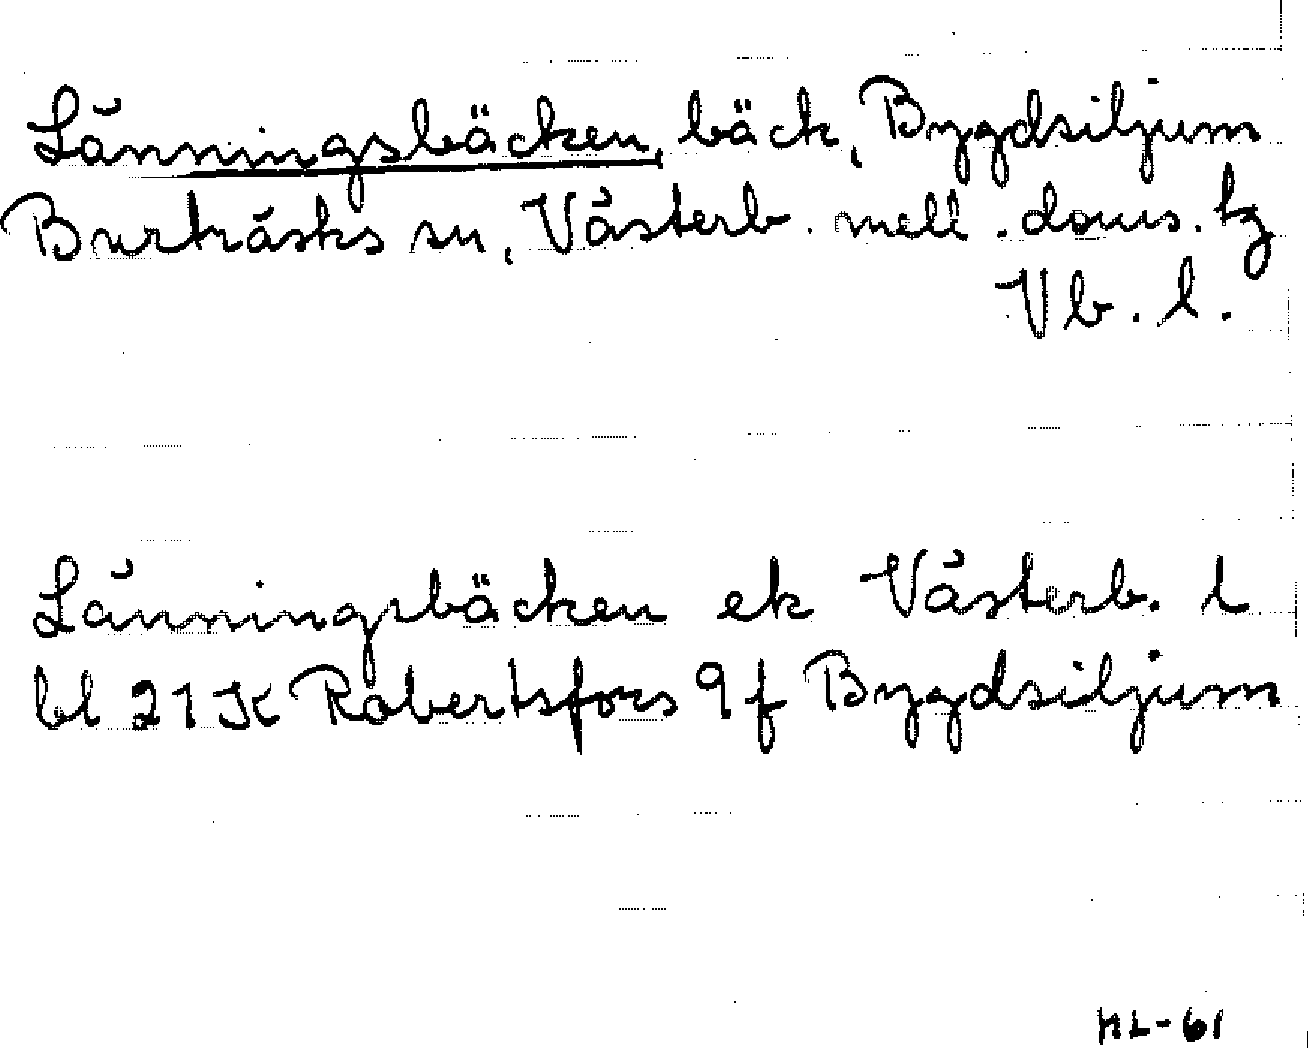 Länningsbäcken, bäck, Bygdsiljum
Burträsks sn, Västerb. mell. doms. tg
Vb. l.
Länningsbäcken ek Västerb. l
bl 21K Robertsfors 9f Bygdsiljum
HL-61